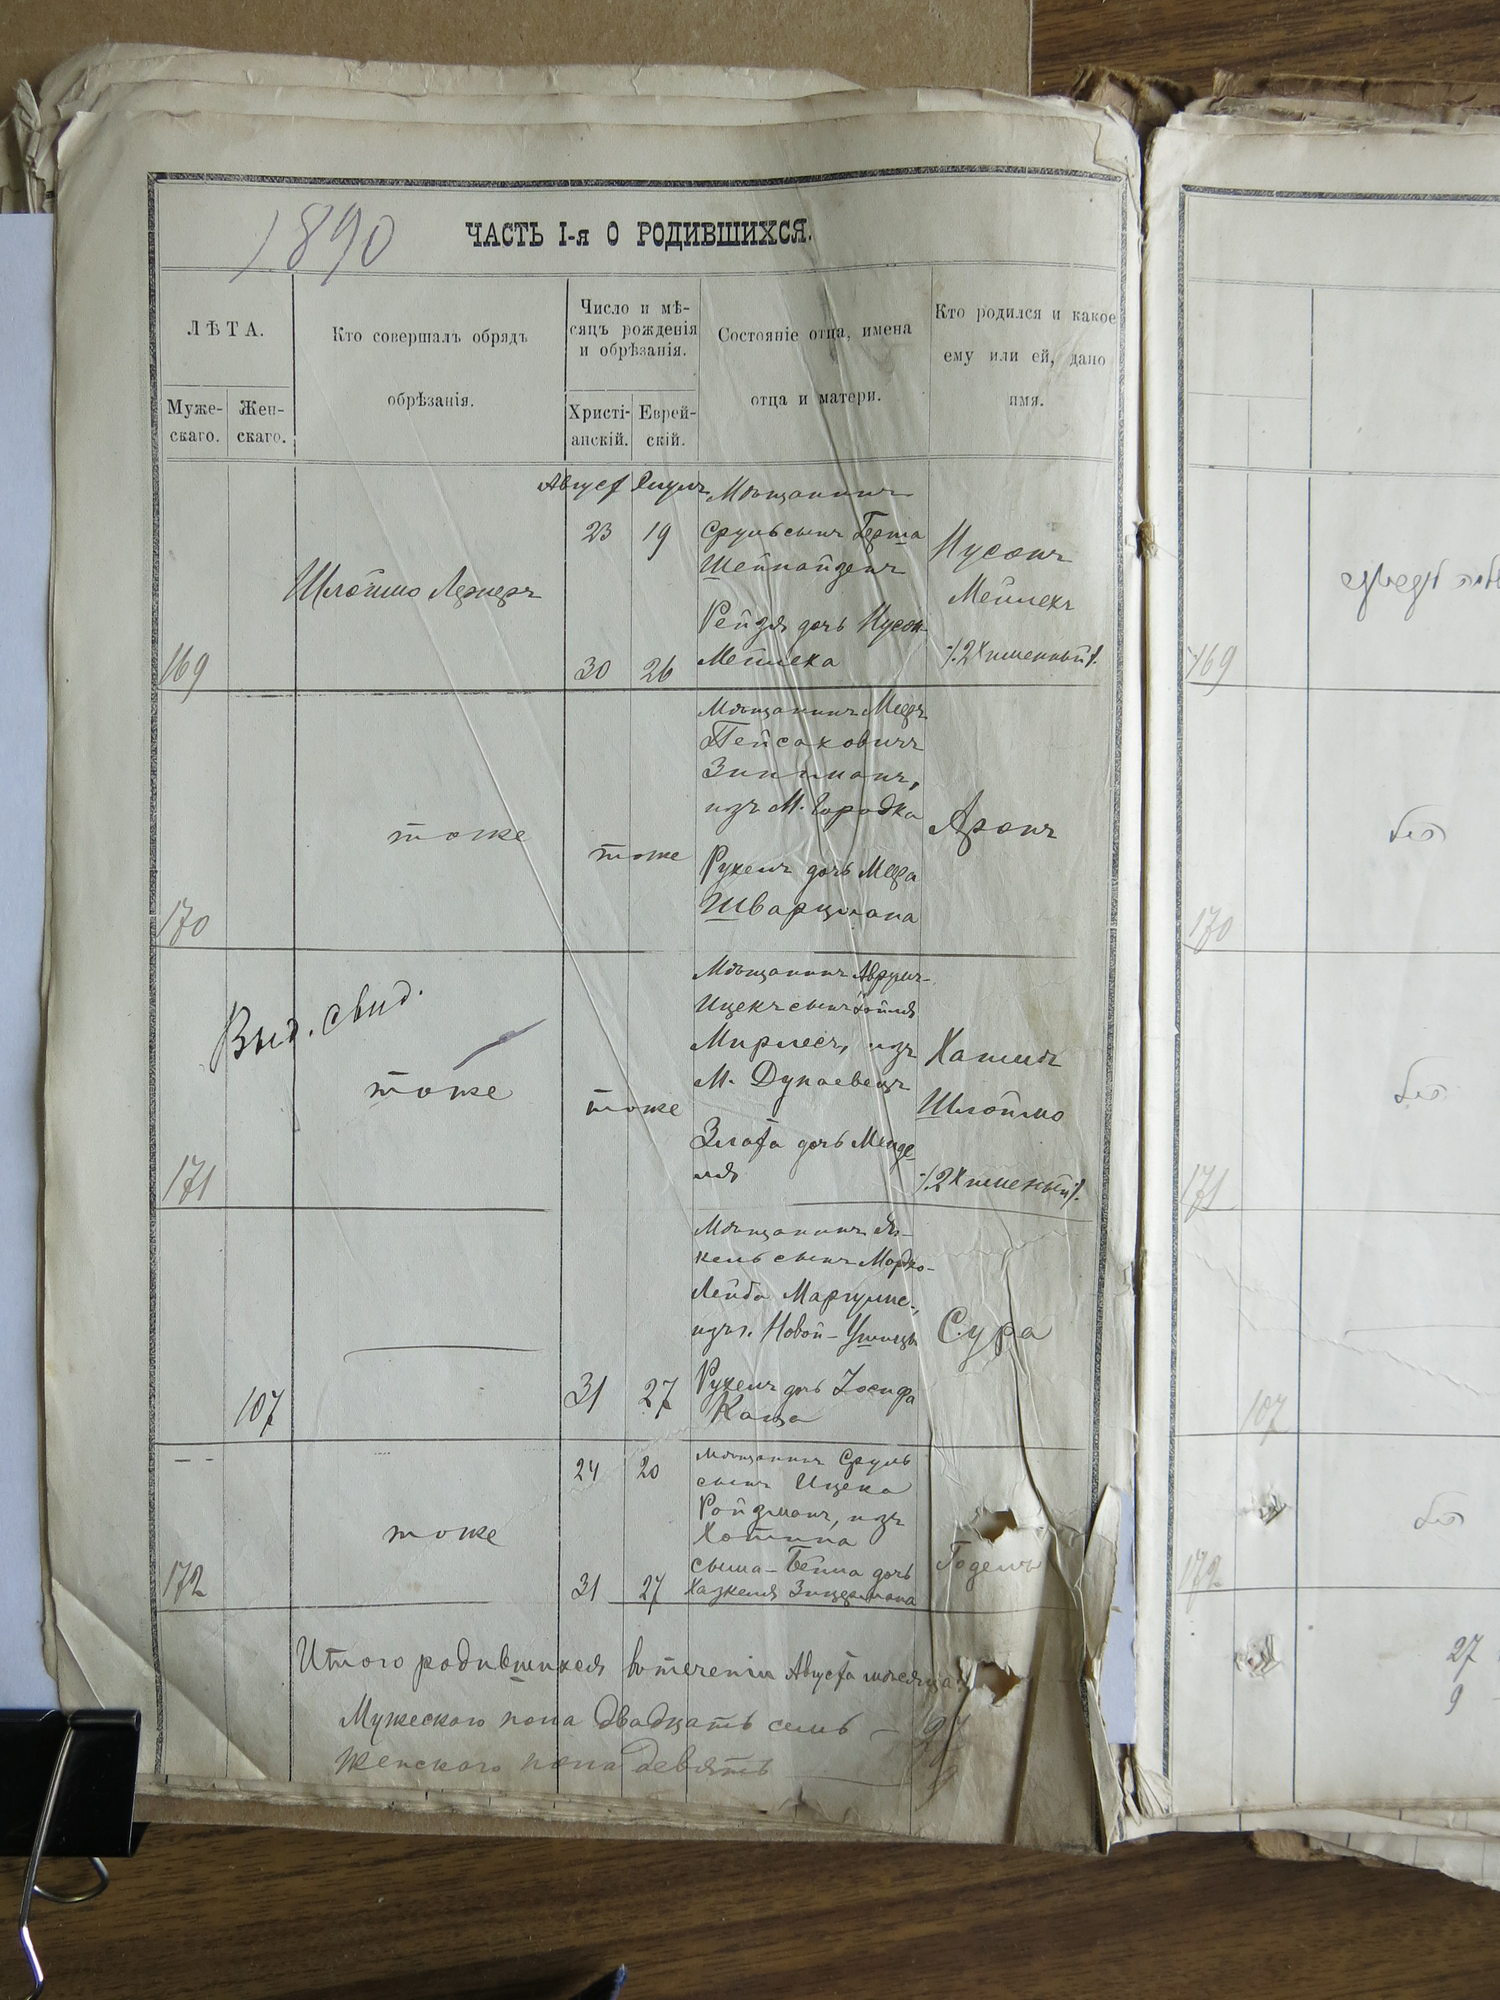 1890
ЧАСТЬ I-я О РОДИВШИХСЯ.
ЛѢТА.
Муже-
скаго.
Жен-
скаго.
Кто совершалъ обрядъ
обрѣзанія.
Число и мѣ-
сяцъ рожденія
и обрѣзанія.
Христі-
анскій.
Еврей-
скій.
Состояніе отца, имена
отца и матери.
Кто родился и какое
ему или ей, дано
имя.
169
Шлоймо Лернеръ
Август
23
30
Элулъ
19
26
Мѣщанинъ
Сруль сынъ Герша
Шейнайзенъ
Рейзя дочь Нусон
Мейлеха
Нусонъ
Мейлехъ
./.2х именный/.
170
тоже
тоже
Мѣщанинъ Мееръ
Пейсаховичъ
Зильманъ,
изъ М. Городка
Рухель дочь Меера
Шварцмана
Аронъ
171
Выд. свид.
тоже
тоже
Мѣщанинъ Аврумъ-
Ицекъ сынъ
Мирлесъ, изъ
М. Дунаевецъ
Злата дочь Менде
ля
Хаимъ
Шлоймо
./.2х именый/.
107
31
27
Мѣщанинъ Ян-
кель сынъ Мордко-
Лейба Маргулис,
изъ г. Новой-Ушицы
Рухель дочь Іосифа
Каца
Сура
172
тоже
24
31
20
27
Мѣщанинъ Сруль
сынъ Ицека
Ройзманъ, изъ
Хотина
Бейла дочь
Хазкеля
Годель
Итого родившихся въ теченіи Августа мѣсяца:
Мужескаго пола двадцать семь — 27
Женскаго пола девять — 9
169
170
171
107
172
27
9